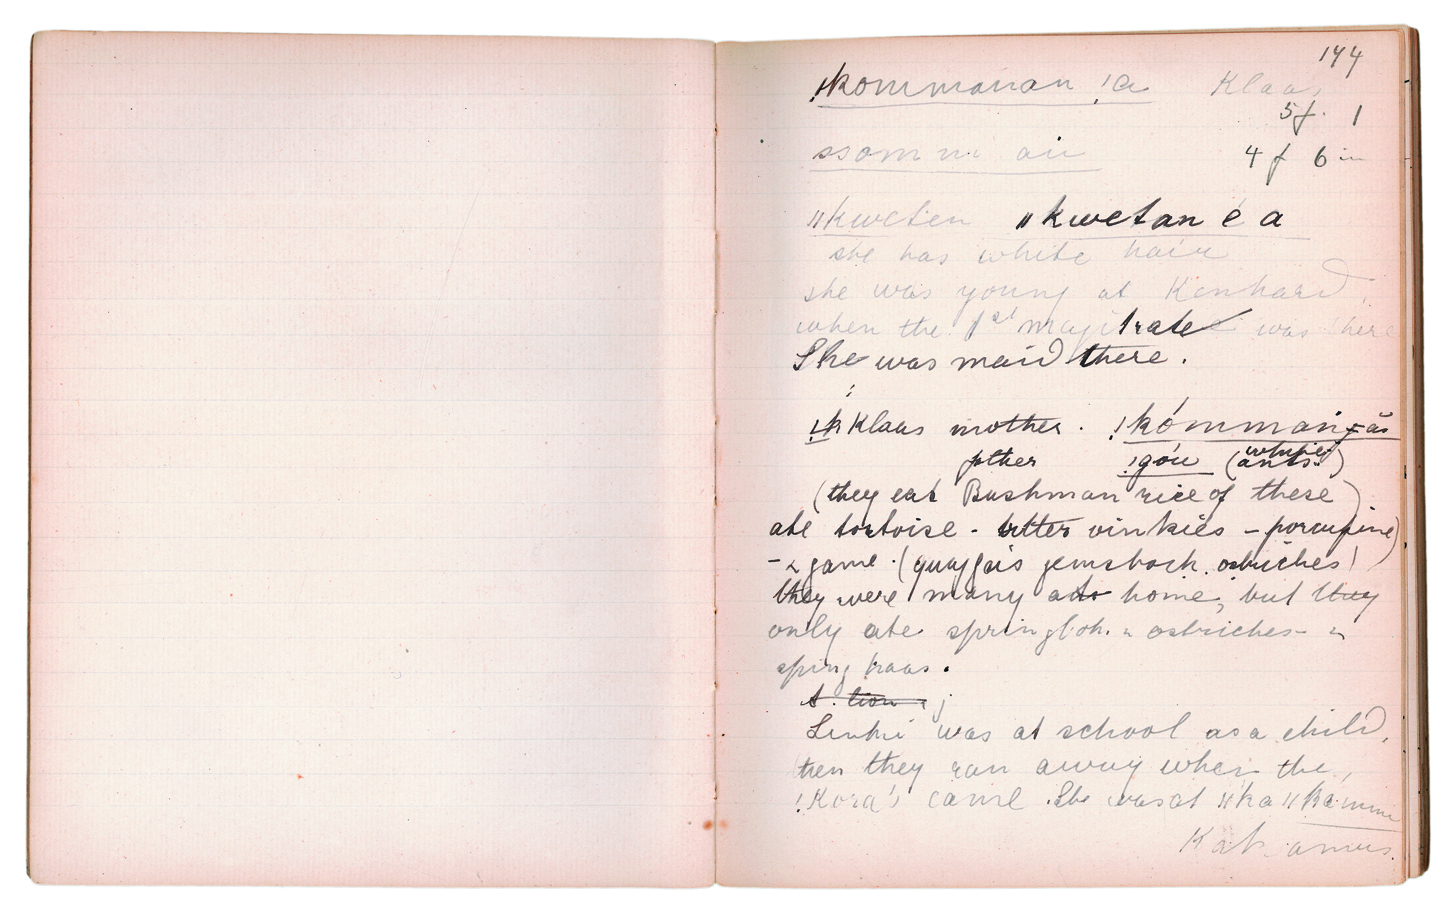 144
!kommanan !a Klaas
5f. 1
ssomm au 4 f 6 in
ǁkweten ǁkwetan é a
she has white hair
she was young at Kenhard,
when the 1st magistrate was there
She was maid there.
!k Klaas mother. !kómman-ǎs
father !góu (white ants.)
(they eat Bushman rice of these)
ate tortoise - vinkies - porcupine)
- & game. (quaggas gemsbock. ostriches)
they were many at home, but they
only ate springbok. " ostriches - "
spring haas.
lion
was at school as a child,
then they ran away when the
!Kora's came. She was at ǁka ǁkamme